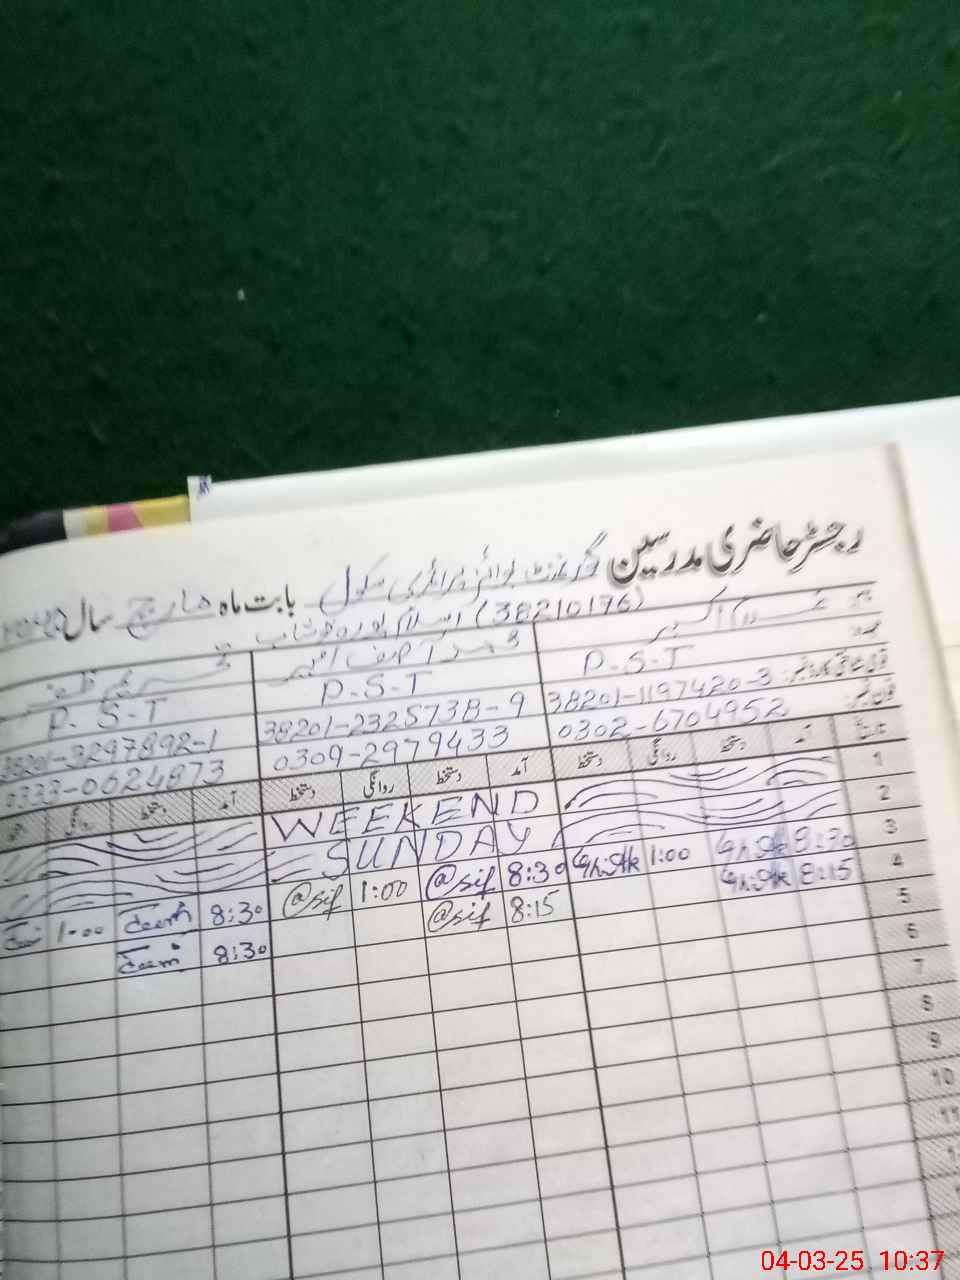 رجسٹر حاضری مدرسین گورنمنٹ بوائز پرائمری سکول بابت ماہ مارچ سال
(38210176)
محمد آصف
P.S.T P.S.T P.S.T
قومی شناختی کارڈ نمبر: 38201-1197420-3 38201-2325738-9 38201-3297892-1
فون نمبر: 0302-6704952 0309-2979433 0333-0624873
تاریخ آمد دستخط روانگی دستخط آمد دستخط روانگی دستخط آمد دستخط روانگی
1 WEEKEND
2 SUNDAY
3 8:30 1:00 8:30 @sif 1:00 @sif 8:30 1:00
4 8:15 8:15 @sif 8:30
5
6
7
8
9
10
11
04-03-25 10:37